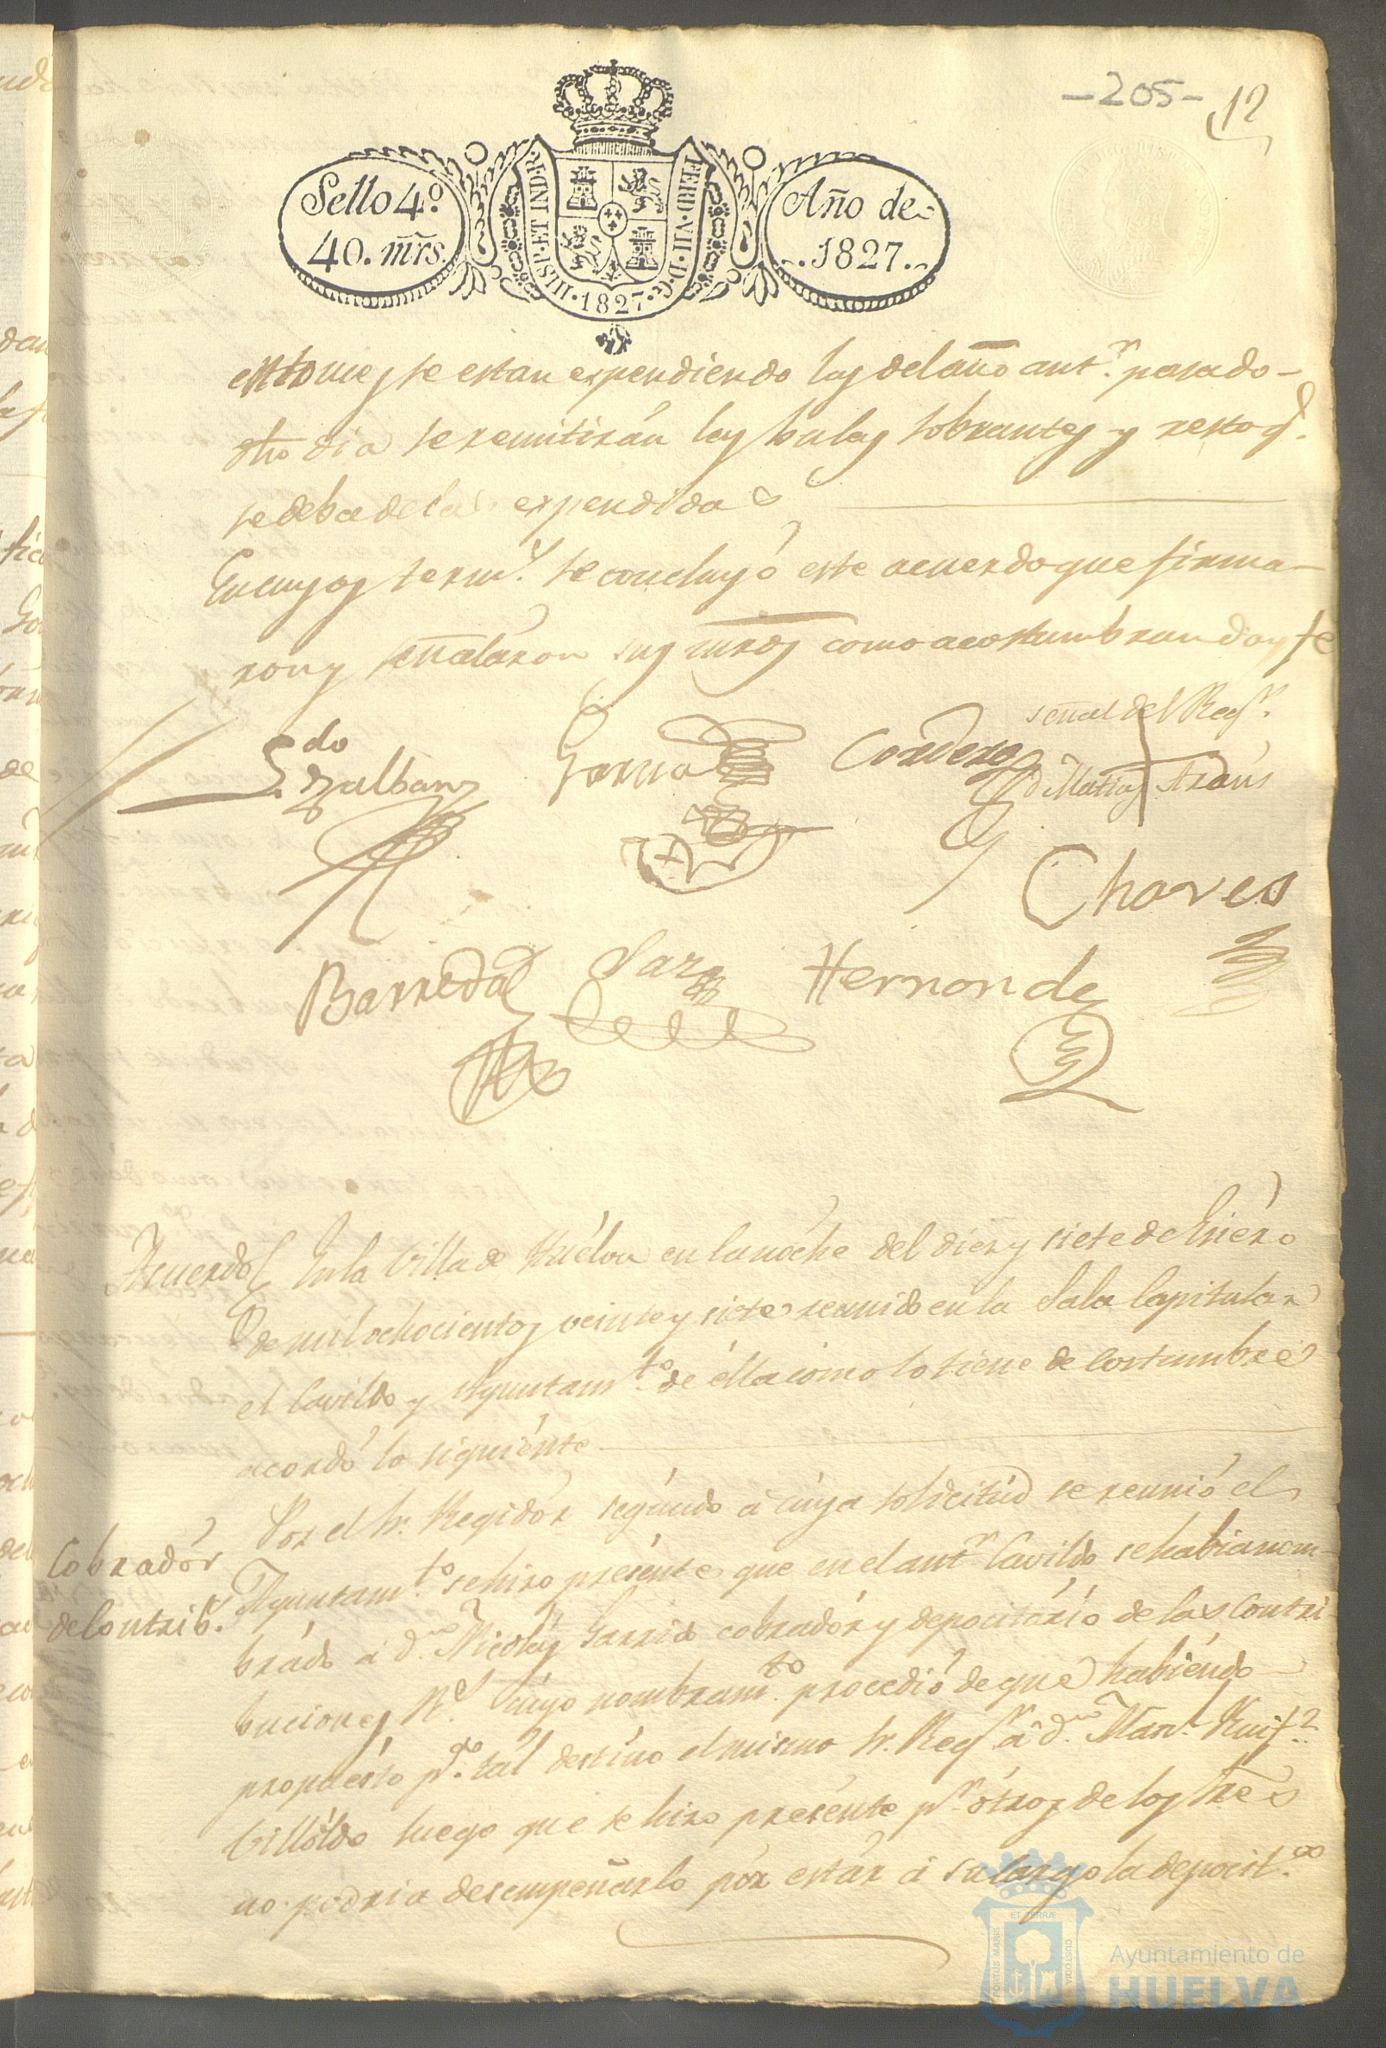 -205-
12
Sello 4º
40. mrs.
HISP. ET IND. R.
1827
FERD. VII. D. G.
Año de
1827.
se estan expendiendo las del año antr. pasado
dho dia se remitirán las bulas sobrantes y resto q.
se deba de las expendidas
En cuyos term.s se concluyó este acuerdo que firma-
ron y señalaron sus mrds como acostumbran doy fe
señal del Regr.
Cordero
d. Matias
Chaves
Barreda
Hernandez
Acuerdo
En la Villa de Huélva en la nóche del diez y siete de Enéro
de mil ochocientos veinte y siete reunido en la Sala Capitular
el Cavildo y Ayuntam.to de élla como lo tiene de costumbre
acordó lo siguiénte
Por el Sr. Regidór segúndo á cúya solicitúd se reunió el
Cobradór
Ayuntam.to se hizo presénte que en el antr. Cavildo se habia nom-
de Contrib.s
brádo á d.n Nicolás Garrido cobradór y depocitário de las Contri-
buciones R.s Cúyo nombram.to procedió de que habiéndo
propuésto p.a tal destino el mismo Sr. Regr. á d.n Man.l
Villóldo luego que se hizo presénte pr. ótros de los Sres
no podria desempeñarlo pór estár á su cargo la deposit.a
PORTUS MARIS ET TERRAE CUSTODIA
Ayuntamiento de
HUELVA